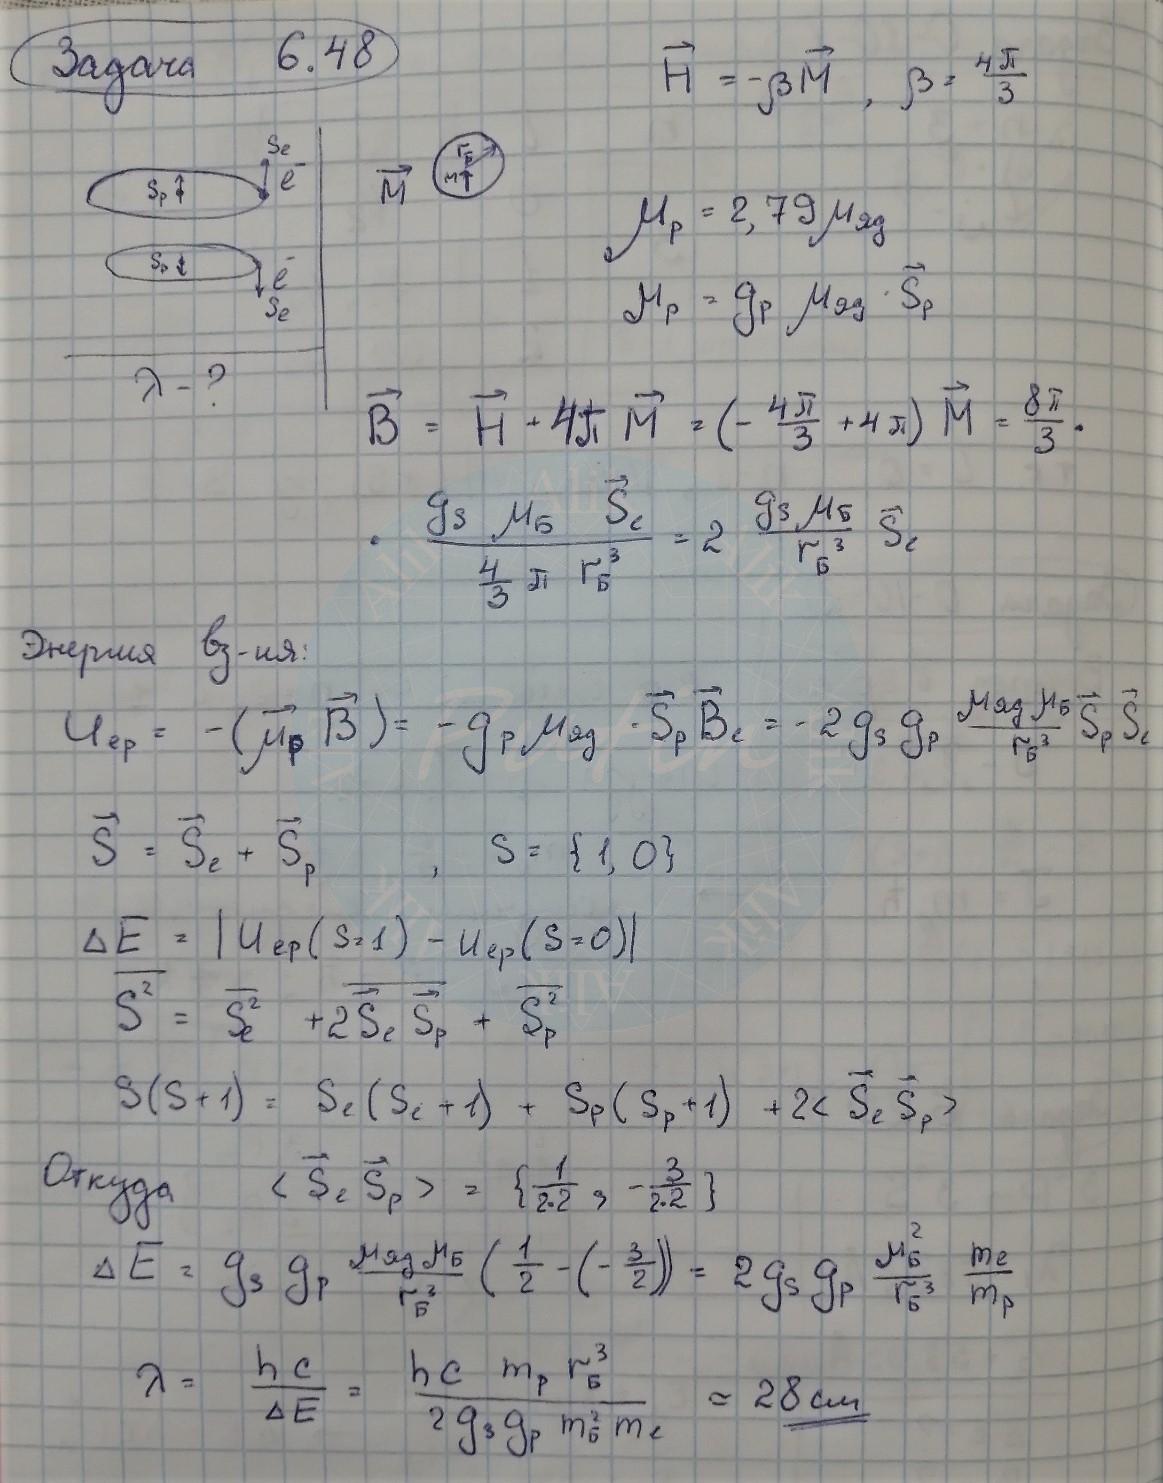 Задача 6.48
H⃗ = -βM⃗ , β = 4π/3
Se
Sp↑ e⁻
M⃗ rБ
M
Sp↓ e⁻
Se
μp = 2,79 μяд
μp = gp μяд · S⃗p
λ - ?
B⃗ = H⃗ + 4π M⃗ = (- 4π/3 + 4π) M⃗ = 8π/3 ·
· gs μБ S⃗e / (4/3 π rБ³) = 2 gs μБ / rБ³ S⃗e
Энергия вз-ия:
Uep = -(μ⃗p B⃗) = -gp μяд · S⃗p B⃗e = -2 gs gp μяд μБ / rБ³ S⃗p S⃗e
S⃗ = S⃗e + S⃗p , S = {1, 0}
ΔE = |Uep(S=1) - Uep(S=0)|
S² = Se² + 2 S⃗e S⃗p + Sp²
S(S+1) = Se(Se+1) + Sp(Sp+1) + 2< S⃗e S⃗p >
Откуда < S⃗e S⃗p > = {1/2·2 , -3/2·2}
ΔE = gs gp μяд μБ / rБ³ (1/2 - (-3/2)) = 2 gs gp μБ² / rБ³ me / mp
λ = hc / ΔE = hc mp rБ³ / 2 gs gp mБ² me ≈ 28 см